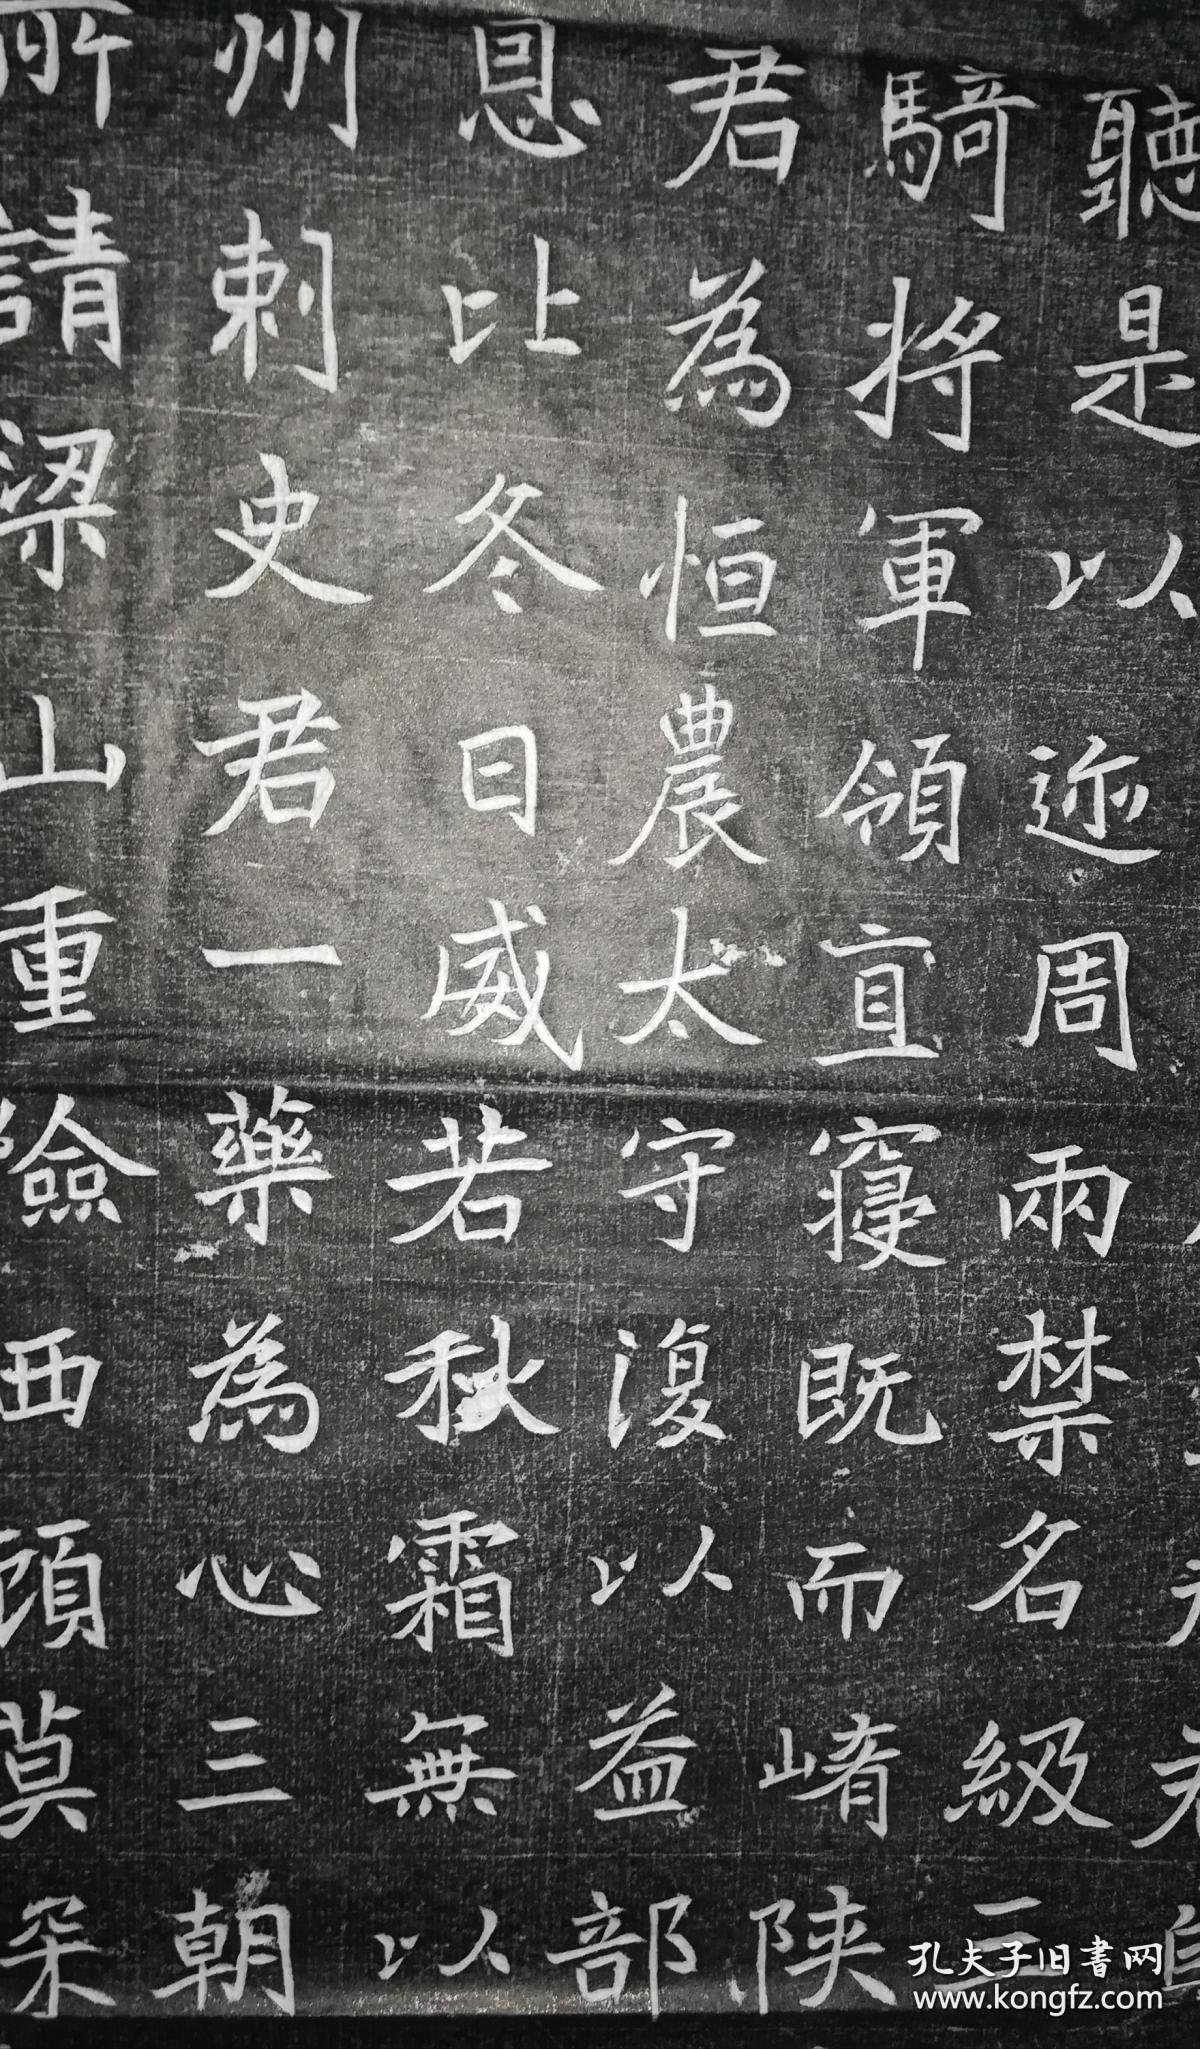 聽是以迩周兩禁名級三
騎將軍領直寢既而崤陝
君為恒農太守復以益部
恩比冬日威若秋霜無以
州刺史君一藥為心三朝
所請梁山重險西頭莫深
孔夫子旧書网
www.kongfz.com